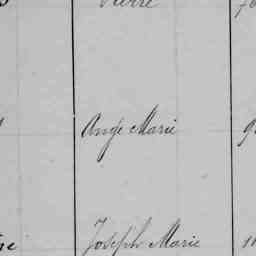 Pierre
Ange Marie
Joseph Marie